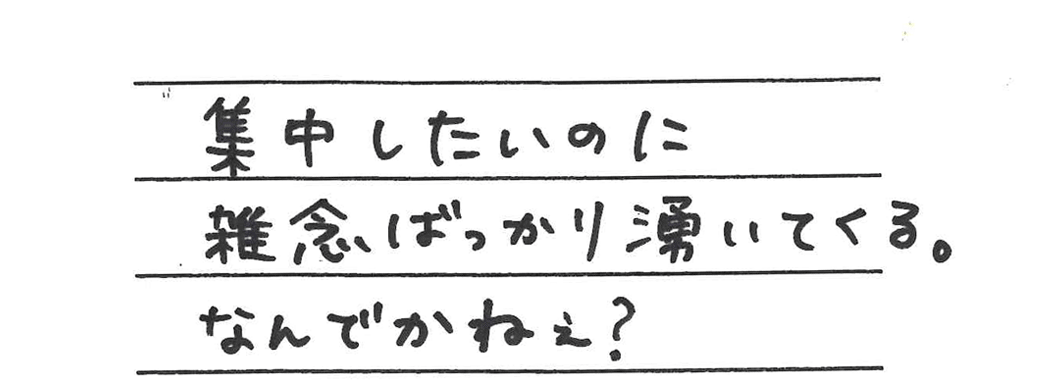 集中したいのに
雑念ばっかり湧いてくる。
なんでかねぇ?